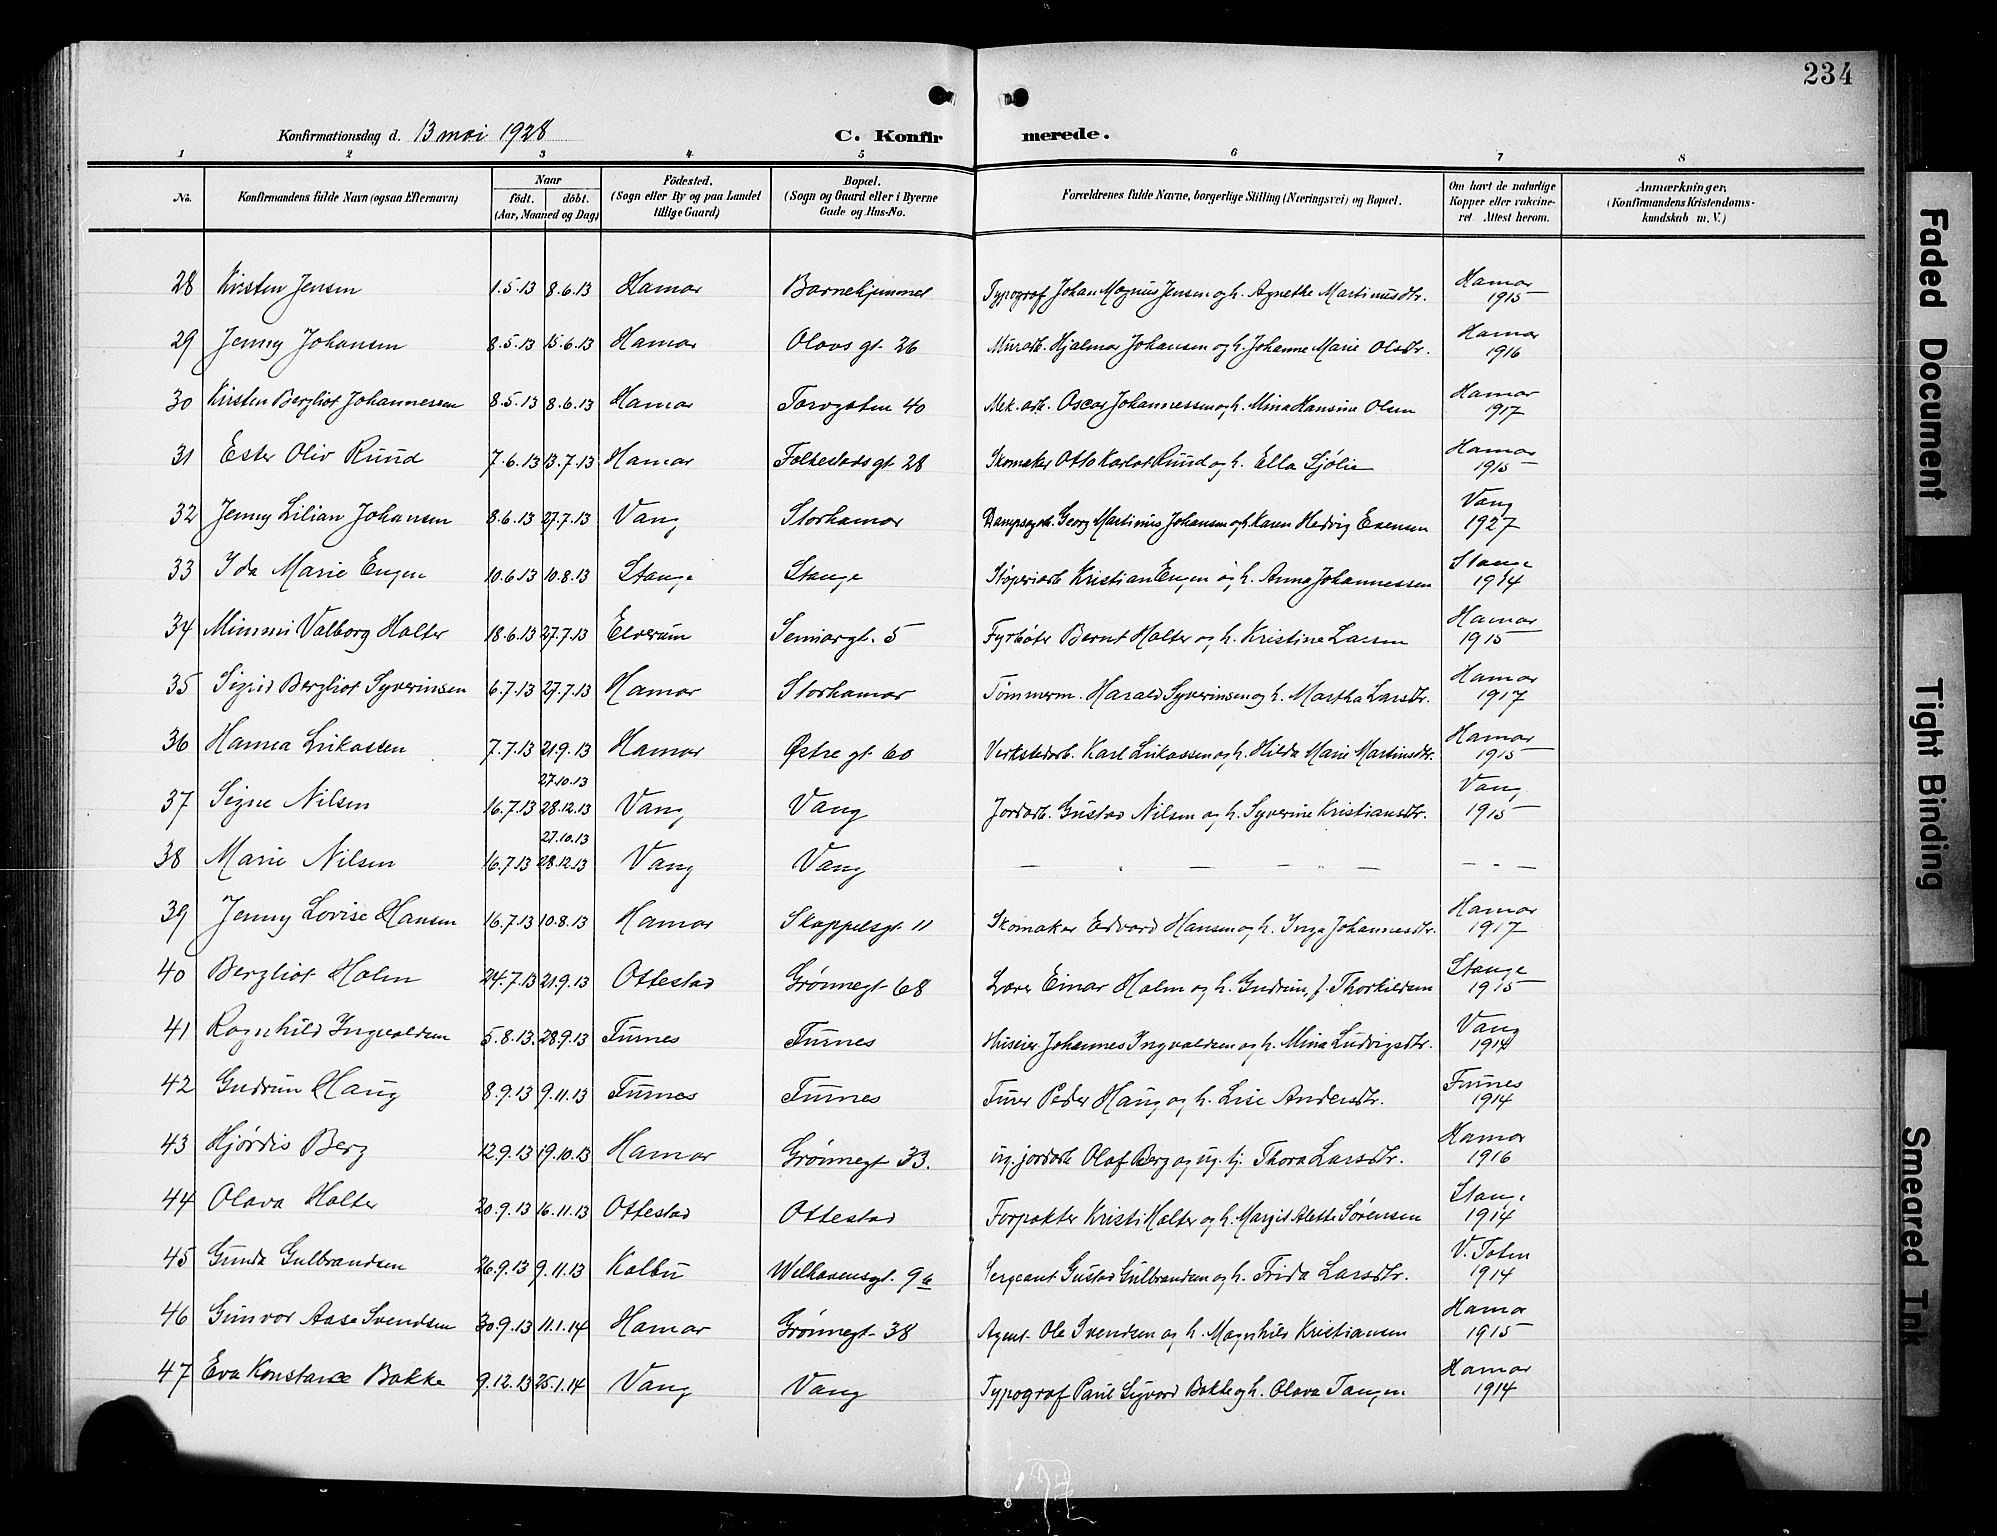 234
Konfirmationsdag d. 13 mai 1928 C. Konfirmerede.
1 2 3 4 5 6 7 8
No. Konfirmandens fulde Navn (ogsaa Efternavn) Naar født. døbt. (Aar, Maaned og Dag) Födested. (Sogn eller By og paa Landet tillige Gaard) Bopæl. (Sogn og Gaard eller i Byerne Gade og Hus-No. Forældrenes fulde Navne, borgerlige Stilling (Næringsvei) og Bopæl. Om havt de naturlige Kopper eller vakcineret Attest herom. Anmærkninger. (Konfirmandens Kristendomskundskab m. V.)
28 Kirsten Jensen 1.5.13 8.6.13 Hamar Barnehjemmet Typograf Johan Magnus Jensen og h. Agnethe Martinusdtr. Hamar 1915
29 Jenny Johansen 8.5.13 15.6.13 Hamar Olavs gt. 26 Murarb. Hjalmar Johansen og h. Johanne Marie Olsdtr. Hamar 1916
30 Kirsten Bergliot Johannessen 8.5.13 8.6.13 Hamar Torvgaten 40 Mek. arb. Oscar Johannessen og h. Mina Hansine Olsen Hamar 1917
31 Ester Oliv Ruud 7.6.13 13.7.13 Hamar Folkestadsgt. 28 Skomaker Otto Karlot Ruud og h. Ella Sjølie Hamar 1915
32 Jenny Lilian Johansen 8.6.13 27.7.13 Vang Storhamar Georg Martinius Johansen og h. Karen Hedvig Evensen Vang 1927
33 Ida Marie Engen 10.6.13 10.8.13 Stange Stange Støperiarb. Kristian Engen og h. Anna Johannessen Stange 1914
34 Mimmi Valborg Holter 18.6.13 27.7.13 Elverum Seminargt. 5 Fyrbøter Bernt Holter og h. Kristine Larsen Hamar 1915
35 Sigrid Bergliot Syverinsen 6.7.13 27.7.13 Hamar Storhamar Tømmerm. Harald Syverinsen og h. Martha Larsdtr. Hamar 1917
36 Hanna Lukassen 7.7.13 21.9.13 Hamar Østre gt. 60 Verkstedarb. Karl Lukassen og h. Hilda Marie Martinsdtr. Hamar 1915
37 Signe Nilsen 16.7.13 27.10.13 28.12.13 Vang Vang Jordarb. Gustav Nilsen og h. Syverine Kristiansdtr. Vang 1915
38 Marie Nilsen 16.7.13 27.10.13 28.12.13 Vang Vang — " — — " — — " —
39 Jenny Lovise Hansen 16.7.13 10.8.13 Hamar Skappelsgt. 11 Skomaker Edvard Hansen og h. Inga Johannesdtr. Hamar 1917
40 Bergliot Holm 24.7.13 21.9.13 Ottestad Grønnegt. 68 Lærer Einar Holm og h. Gudrun, f. Thorkildsen Stange 1915
41 Ragnhild Ingvaldsen 5.8.13. 28.9.13 Furnes Furnes Huseier Johannes Ingvaldsen og h. Mina Ludvigsdtr. Vang 1914
42 Gudrun Haug 8.9.13 9.11.13 Furnes Furnes Peder Haug og h. Lise Andersdtr. Furnes 1914
43 Hjørdis Berg 12.9.13 19.10.13 Hamar Grønnegt. 33. ug. jordarb. Olaf Berg og ug. tj. Thora Larsdtr. Hamar 1916
44 Olava Holter 20.9.13 16.11.13 Ottestad Ottestad Forpakter Kristi Holter og h. Margit Alette Sørensen Stange 1914
45 Gunda Gulbrandsen 26.9.13 9.11.13 Kolbu Welhavensgt. 9a Sergeant Gustav Gulbrandsen og h. Frida Larsdtr. V. Toten 1914
46 Gunvor Aase Svendsen 30.9.13 11.1.14 Hamar Grønnegt. 38 Agent Ole Svendsen og h. Magnhild Kristiansen Hamar 1915
47 Eva Konstance Bakke 9.12.13 25.1.14 Vang Vang Typograf Paul Sigvard Bakke og h. Olava Tangen Hamar 1914
Faded Document
Tight Binding
Smeared Ink